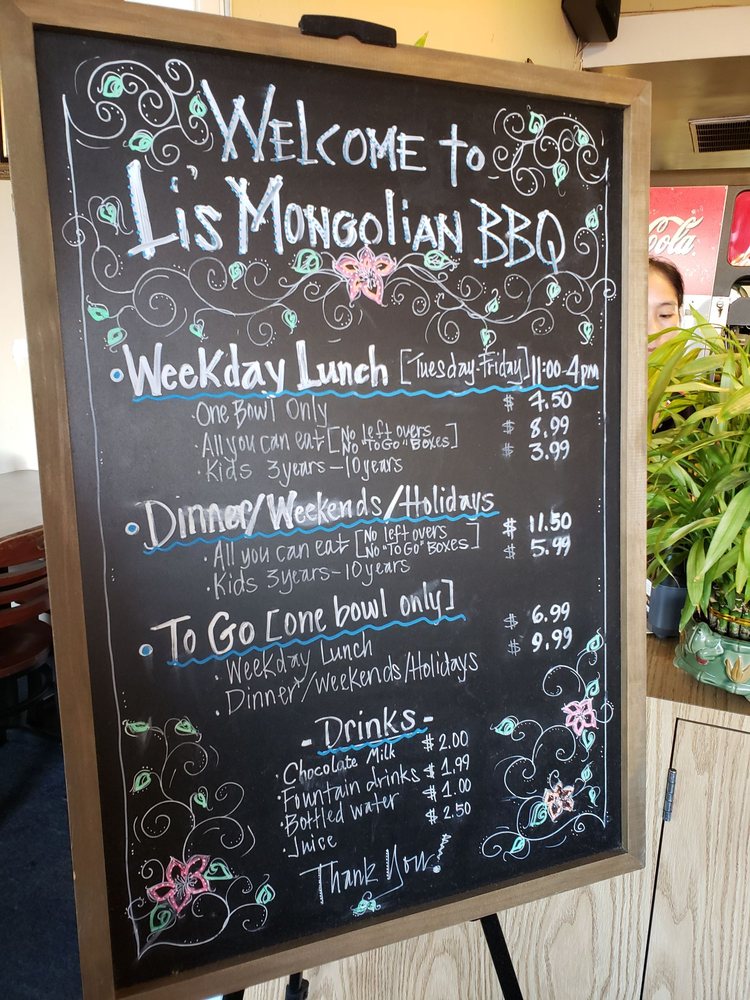 Welcome to
Li's Mongolian BBQ
Coca-Cola
• Weekday Lunch [Tuesday-Friday] 11:00-4pm
· One Bowl Only $ 7.50
· All you can eat [No left overs No "To Go" Boxes] $ 8.99
· Kids 3years-10years $ 3.99
• Dinner/Weekends/Holidays
· All you can eat [No left overs No "To Go" Boxes] $ 11.50
· Kids 3years-10years $ 5.99
• To Go [one bowl only]
· Weekday Lunch $ 6.99
· Dinner/Weekends/Holidays $ 9.99
- Drinks -
· Chocolate Milk $ 2.00
· Fountain drinks $ 1.99
· Bottled water $ 1.00
· Juice $ 2.50
Thank You!